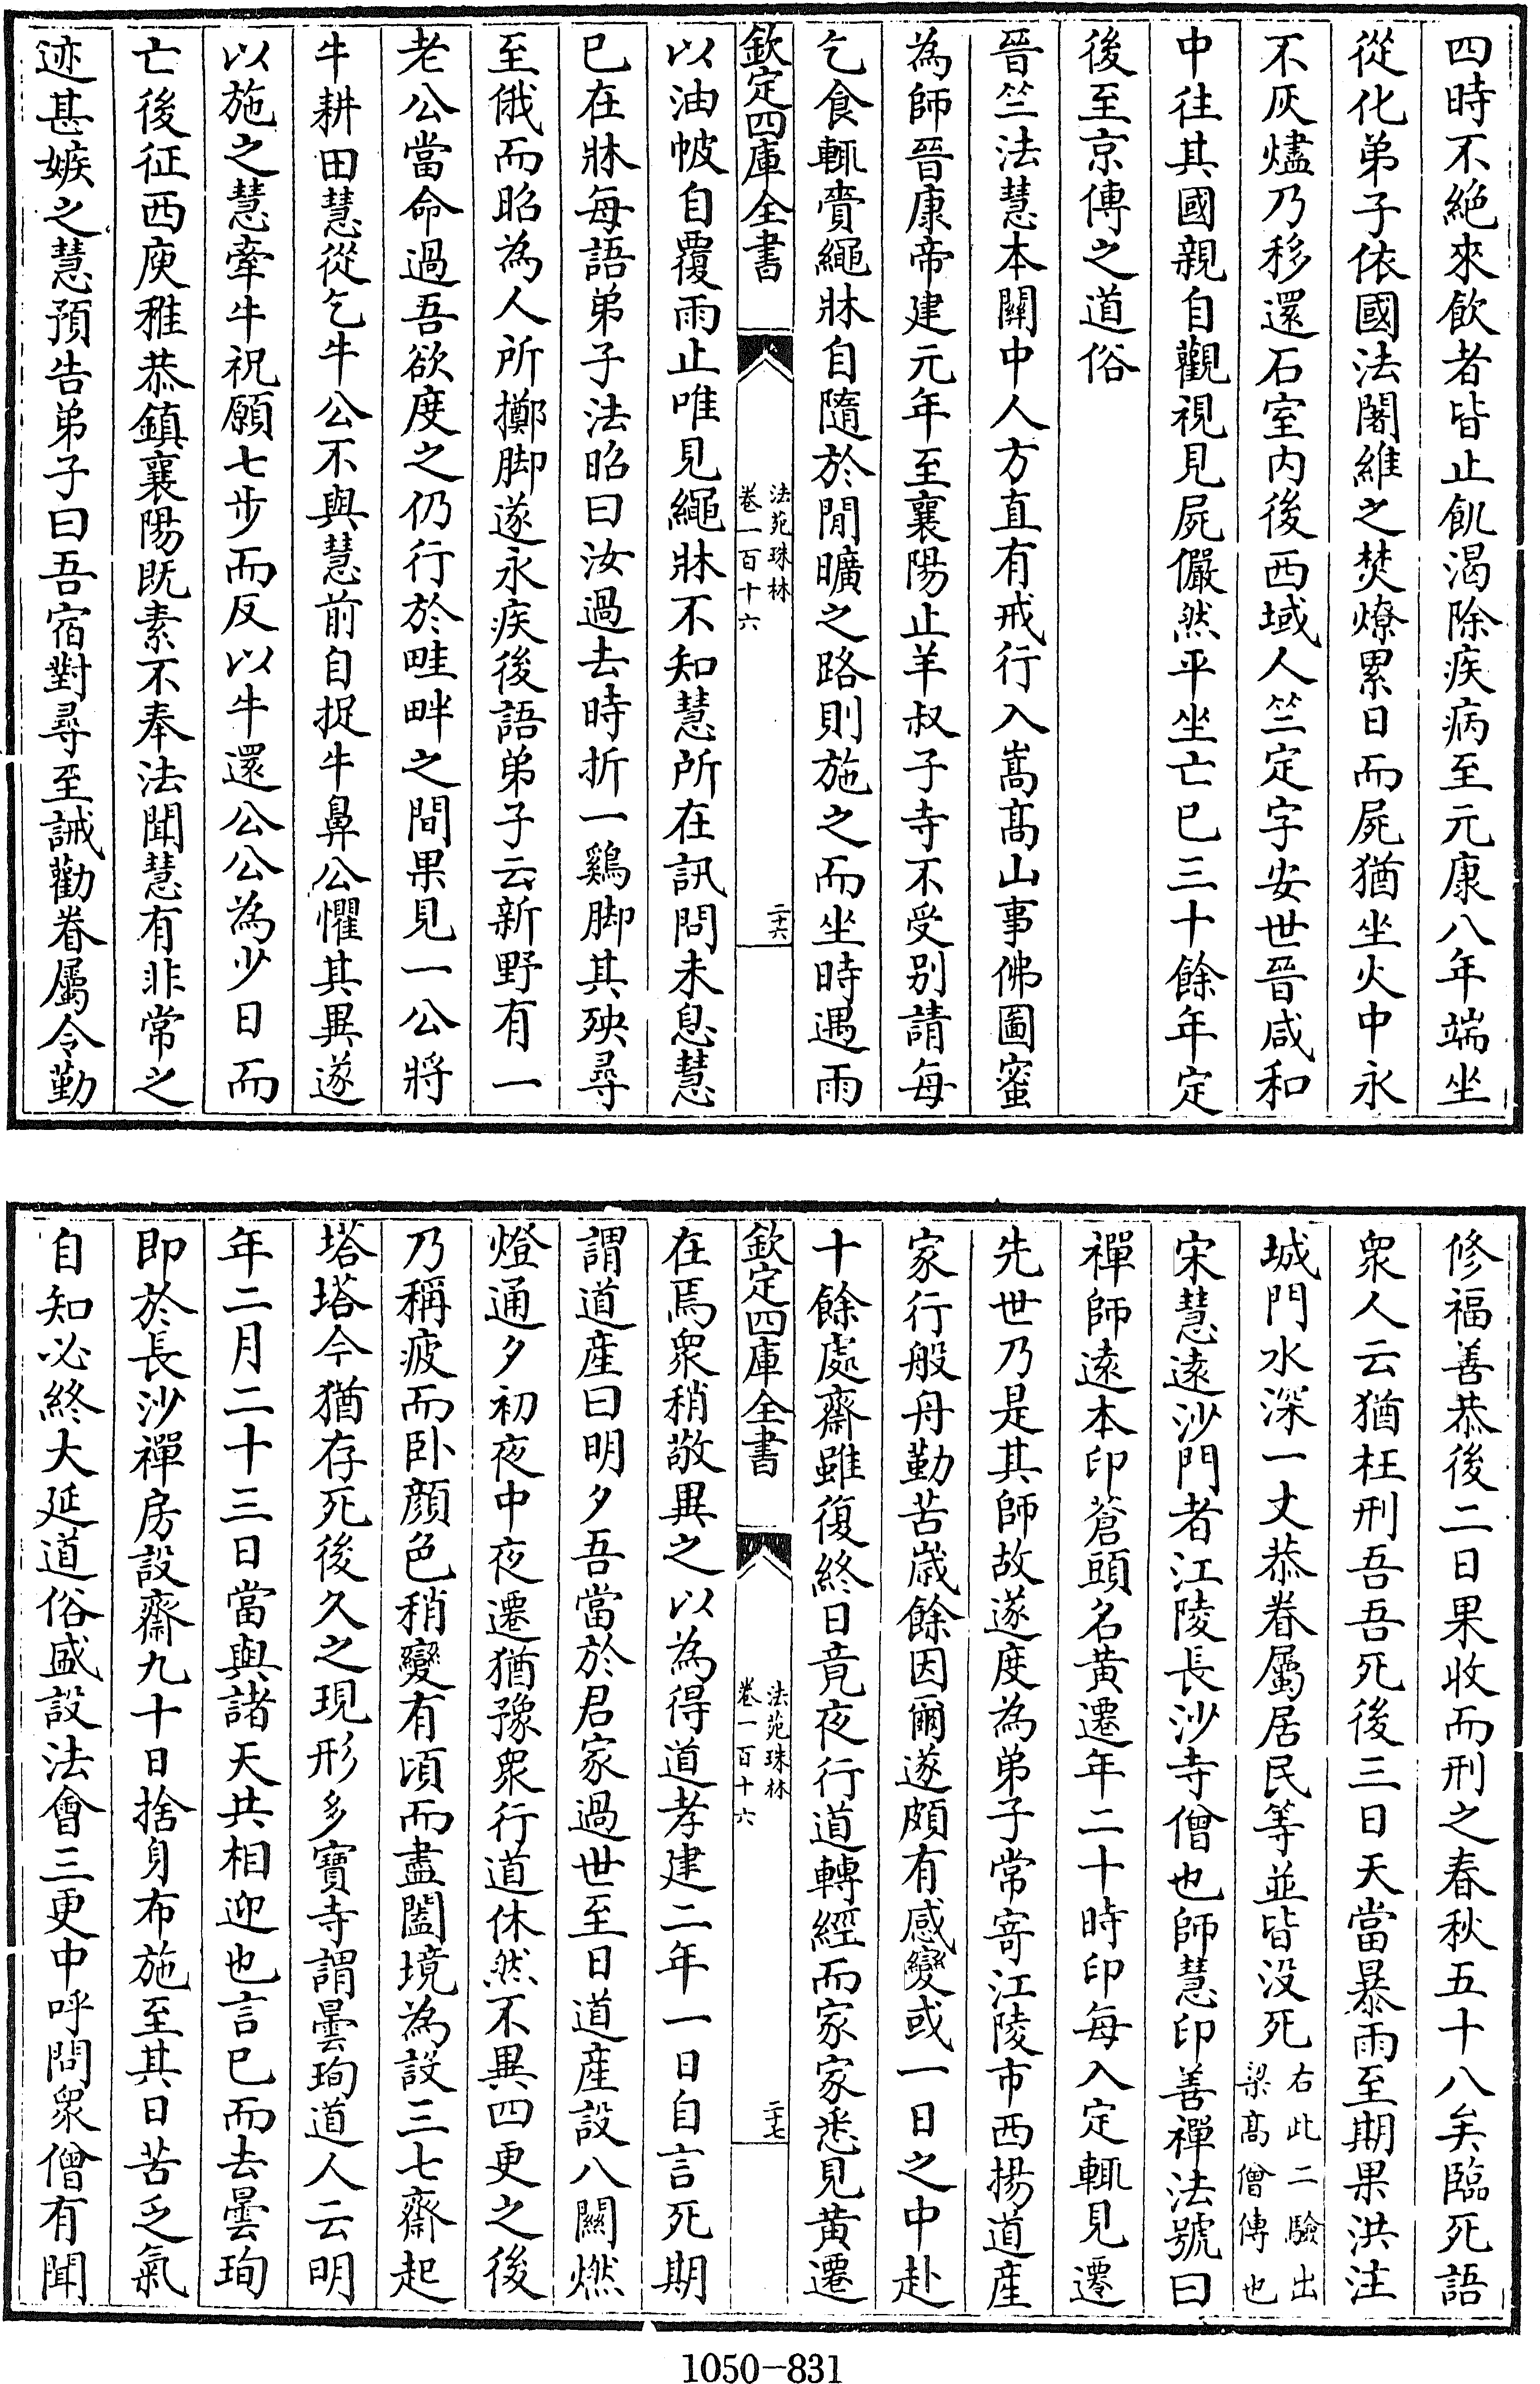 四時不絶來飲者皆止飢渴除疾病至元康八年端坐
從化弟子依國法闍維之焚燎累日而屍猶坐火中永
不灰燼乃移還石室内後西域人竺定字安世晉咸和
中往其國親自觀視見屍儼然平坐亡已三十餘年定
後至京傳之道俗
晉竺法慧本關中人方直有戒行入嵩髙山事佛圖蜜
為師晉康帝建元年至襄陽止羊叔子寺不受别請每
乞食輒賫繩牀自隨於閒曠之路則施之而坐時遇雨
欽定四庫全書
法苑珠林
卷一百十六
二十六
以油帔自覆雨止唯見繩牀不知慧所在訊問未息慧
已在牀每語弟子法昭曰汝過去時折一鷄脚其殃尋
至俄而昭為人所擲脚遂永疾後語弟子云新野有一
老公當命過吾欲度之仍行於畦畔之間果見一公將
牛耕田慧從乞牛公不與慧前自捉牛鼻公懼其異遂
以施之慧牽牛祝願七步而反以牛還公公為少日而
亡後征西庾稚恭鎮襄陽既素不奉法聞慧有非常之
迹甚嫉之慧預告弟子曰吾宿對尋至誡勸眷屬令勤
修福善恭後二日果收而刑之春秋五十八矣臨死語
衆人云猶枉刑吾吾死後三日天當暴雨至期果洪注
城門水深一丈恭眷屬居民等並皆没死右此二驗出
梁髙僧傳也
宋慧遠沙門者江陵長沙寺僧也師慧印善禪法號曰
禪師遠本印蒼頭名黄遷年二十時印每入定輒見遷
先世乃是其師故遂度為弟子常寄江陵市西揚道産
家行般舟勤苦嵗餘因爾遂頗有感變或一日之中赴
十餘處齋雖復終日竟夜行道轉經而家家悉見黄遷
欽定四庫全書
法苑珠林
卷一百十六
二十七
在焉衆稍敬異之以為得道孝建二年一日自言死期
謂道産曰明夕吾當於君家過世至日道産設八關燃
燈通夕初夜中夜遷猶豫衆行道休然不異四更之後
乃稱疲而卧顔色稍變有頃而盡闔境為設三七齋起
塔塔今猶存死後久之現形多寶寺謂曇珣道人云明
年二月二十三日當與諸天共相迎也言已而去曇珣
即於長沙禪房設齋九十日捨身布施至其日苦乏氣
自知必終大延道俗盛設法會三更中呼問衆僧有聞
1050-831